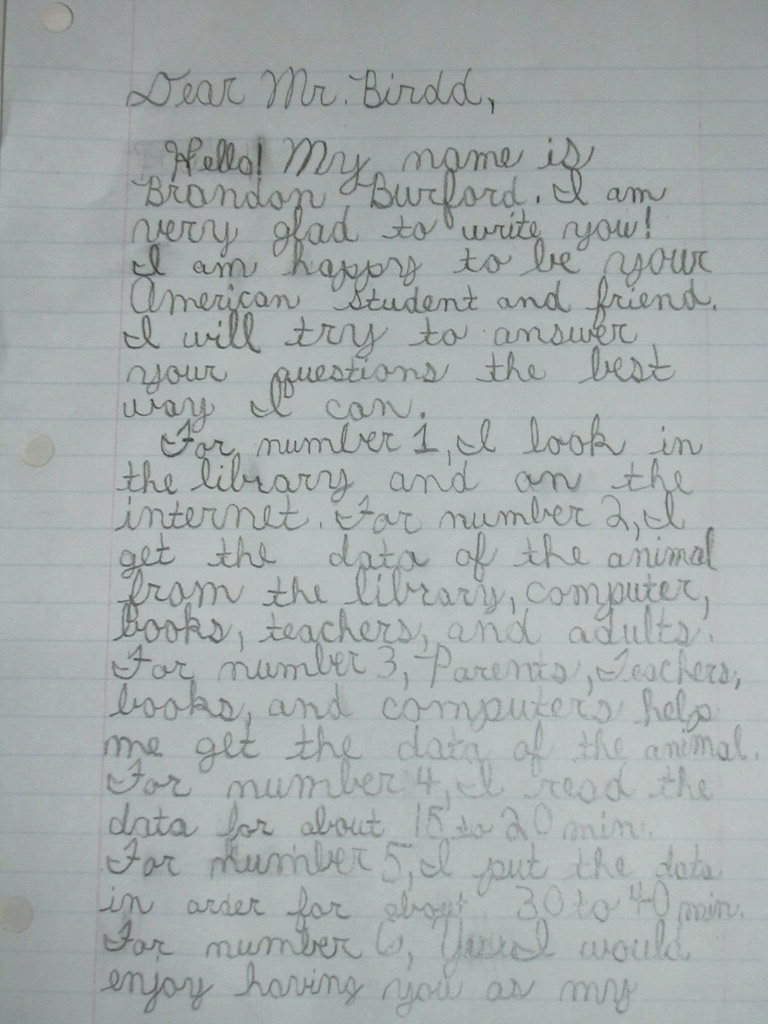 Dear Mr. Birdd,
Hello! My name is
Brandon Burford. I am
very glad to write you!
I am happy to be your
American student and friend.
I will try to answer
your questions the best
way I can.
For number 1, I look in
the library and on the
internet. For number 2, I
get the data of the animal
from the library, computer,
books, teachers, and adults.
For number 3, Parents, Teachers,
books, and computers help
me get the data of the animal.
For number 4, I read the
data for about 15 to 20 min.
For number 5, I put the data
in order for about 30 to 40 min.
For number 6, I would
enjoy having you as my